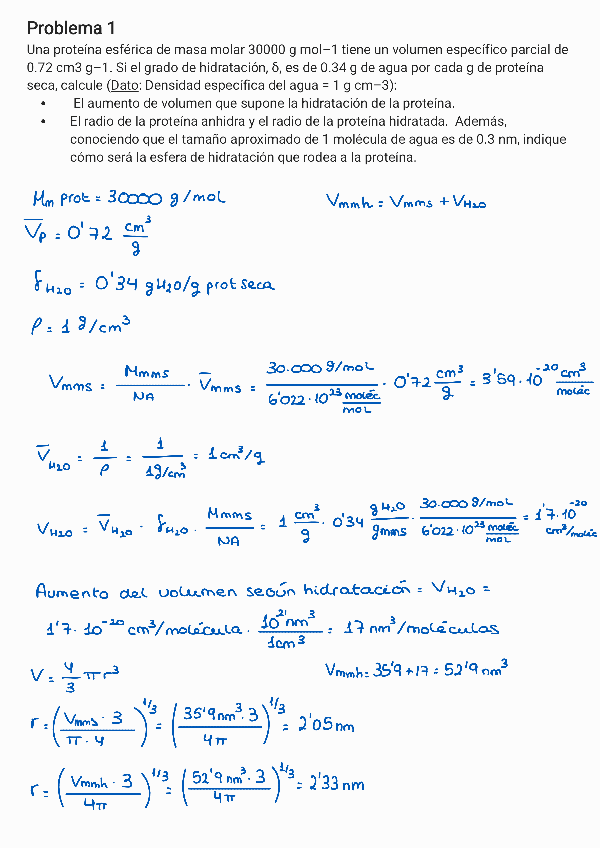 Problema 1
Una proteína esférica de masa molar 30000 g mol–1 tiene un volumen específico parcial de
0.72 cm3 g–1. Si el grado de hidratación, δ, es de 0.34 g de agua por cada g de proteína
seca, calcule (Dato: Densidad específica del agua = 1 g cm–3):
• El aumento de volumen que supone la hidratación de la proteína.
• El radio de la proteína anhidra y el radio de la proteína hidratada. Además,
conociendo que el tamaño aproximado de 1 molécula de agua es de 0.3 nm, indique
cómo será la esfera de hidratación que rodea a la proteína.
Mm prot = 30000 g/mol
Vmmh = Vmms + VH2O
V̅p = 0'72 cm³/g
δH2O = 0'34 gH2O/g prot seca
ρ = 1 g/cm³
Vmms = Mmms/NA · V̅mms = 30.000 g/mol / 6'022·10²³ moléc/mol · 0'72 cm³/g = 3'59·10⁻²⁰ cm³/moléc
V̅H2O = 1/ρ = 1/1g/cm³ = 1 cm³/g
VH2O = V̅H2O · δH2O · Mmms/NA = 1 cm³/g · 0'34 gH2O/gmms · 30.000 g/mol / 6'022·10²³ moléc/mol = 1'7·10⁻²⁰ cm³/moléc
Aumento del volumen según hidratación = VH2O =
1'7·10⁻²⁰ cm³/molécula · 10²¹ nm³/1cm³ = 17 nm³/moléculas
V = 4/3 π r³
Vmmh = 35'9 + 17 = 52'9 nm³
r = (Vmms · 3 / π · 4)^1/3 = (35'9 nm³ · 3 / 4π)^1/3 = 2'05 nm
r = (Vmmh · 3 / 4π)^1/3 = (52'9 nm³ · 3 / 4π)^1/3 = 2'33 nm